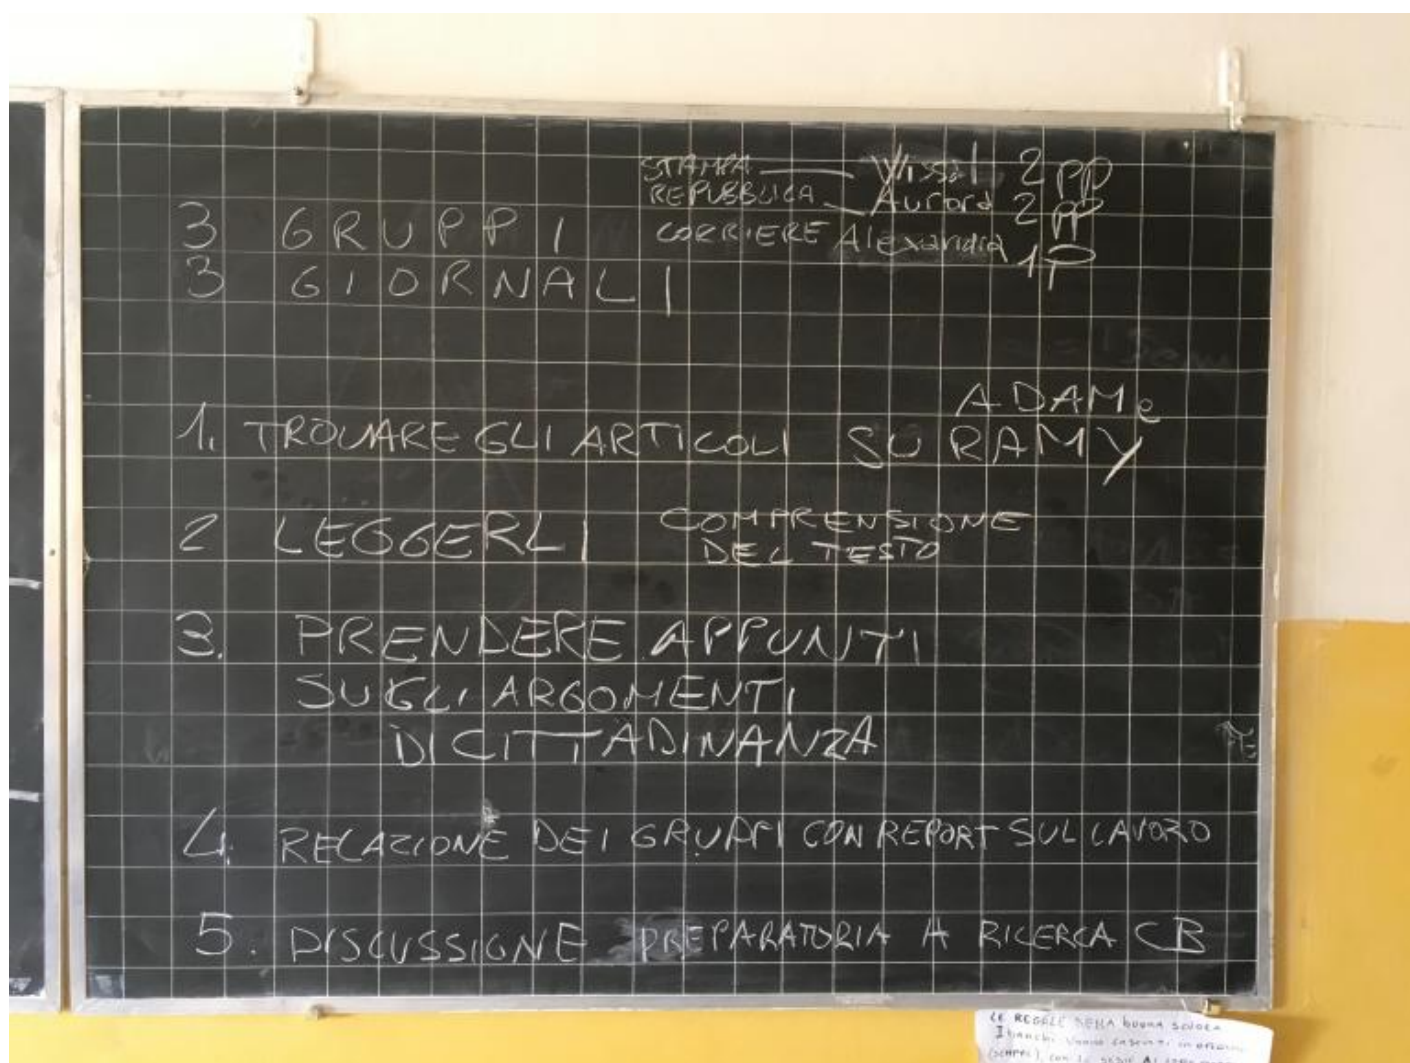 STAMPA — Wissal 2 PP
REPUBBLICA — Aurora 2 PP
CORRIERE Alexandra 1 P
3 GRUPPI
3 GIORNALI
ADAM e
1. TROVARE GLI ARTICOLI SU RAMY
2 LEGGERLI COMPRENSIONE
DEL TESTO
3. PRENDERE APPUNTI
SUGLI ARGOMENTI
DI CITTADINANZA
4. RELAZIONE DEI GRUPPI CON REPORT SUL LAVORO
5. DISCUSSIONE PREPARATORIA A RICERCA CB
LE REGOLE DELLA buona scuola
I banchi vanno
(SEMPRE), con le sedie